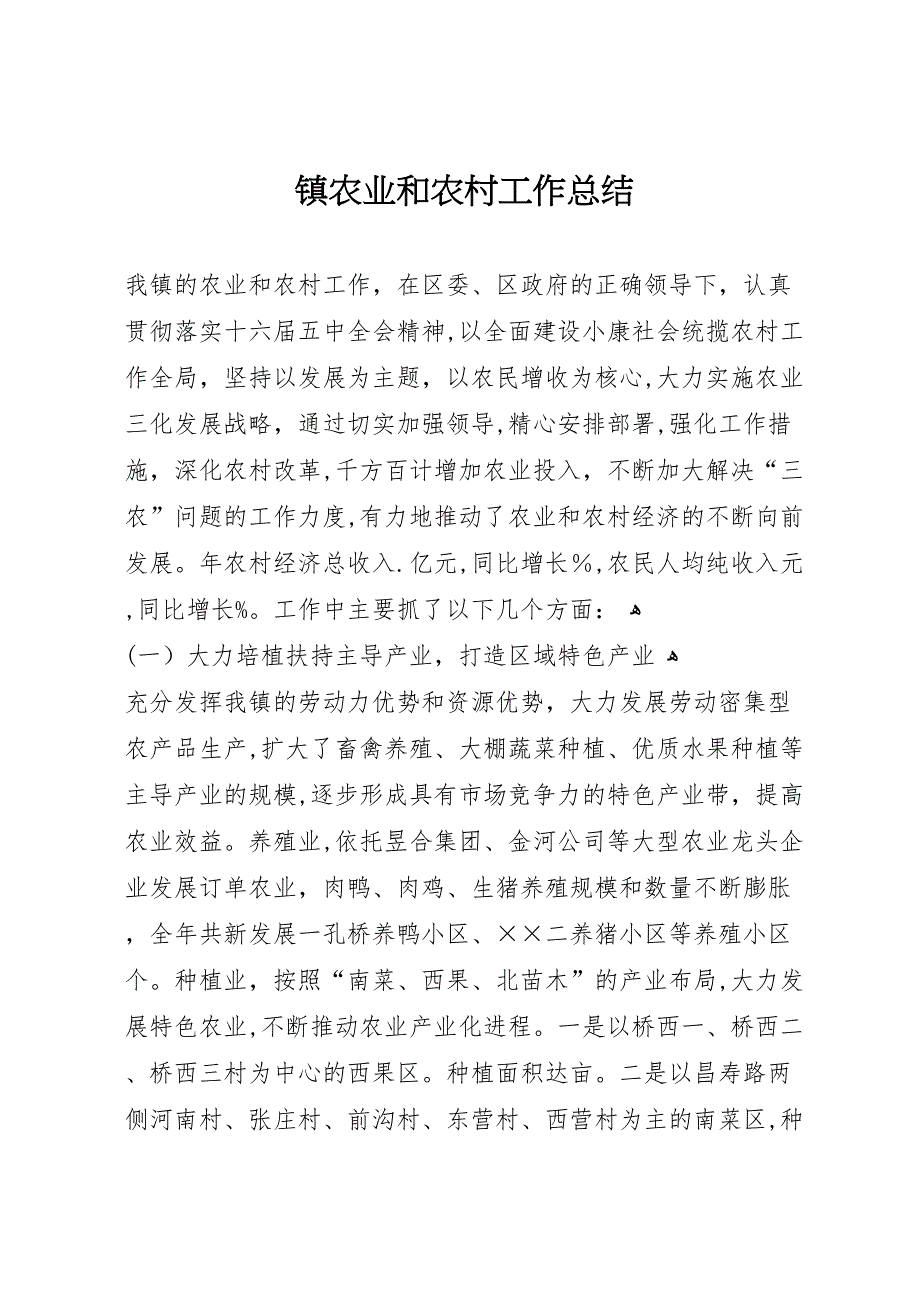 镇农业和农村工作总结
我镇的农业和农村工作，在区委、区政府的正确领导下，认真
贯彻落实十六届五中全会精神,以全面建设小康社会统揽农村工
作全局，坚持以发展为主题，以农民增收为核心,大力实施农业
三化发展战略，通过切实加强领导,精心安排部署,强化工作措
施，深化农村改革,千方百计增加农业投入，不断加大解决“三
农”问题的工作力度,有力地推动了农业和农村经济的不断向前
发展。年农村经济总收入.亿元,同比增长％,农民人均纯收入元
,同比增长%。工作中主要抓了以下几个方面： ﻫ
(一）大力培植扶持主导产业，打造区域特色产业 ﻫ
充分发挥我镇的劳动力优势和资源优势，大力发展劳动密集型
农产品生产,扩大了畜禽养殖、大棚蔬菜种植、优质水果种植等
主导产业的规模,逐步形成具有市场竞争力的特色产业带，提高
农业效益。养殖业,依托昱合集团、金河公司等大型农业龙头企
业发展订单农业，肉鸭、肉鸡、生猪养殖规模和数量不断膨胀
，全年共新发展一孔桥养鸭小区、××二养猪小区等养殖小区
个。种植业，按照“南菜、西果、北苗木”的产业布局,大力发
展特色农业,不断推动农业产业化进程。一是以桥西一、桥西二
、桥西三村为中心的西果区。种植面积达亩。二是以昌寿路两
侧河南村、张庄村、前沟村、东营村、西营村为主的南菜区,种